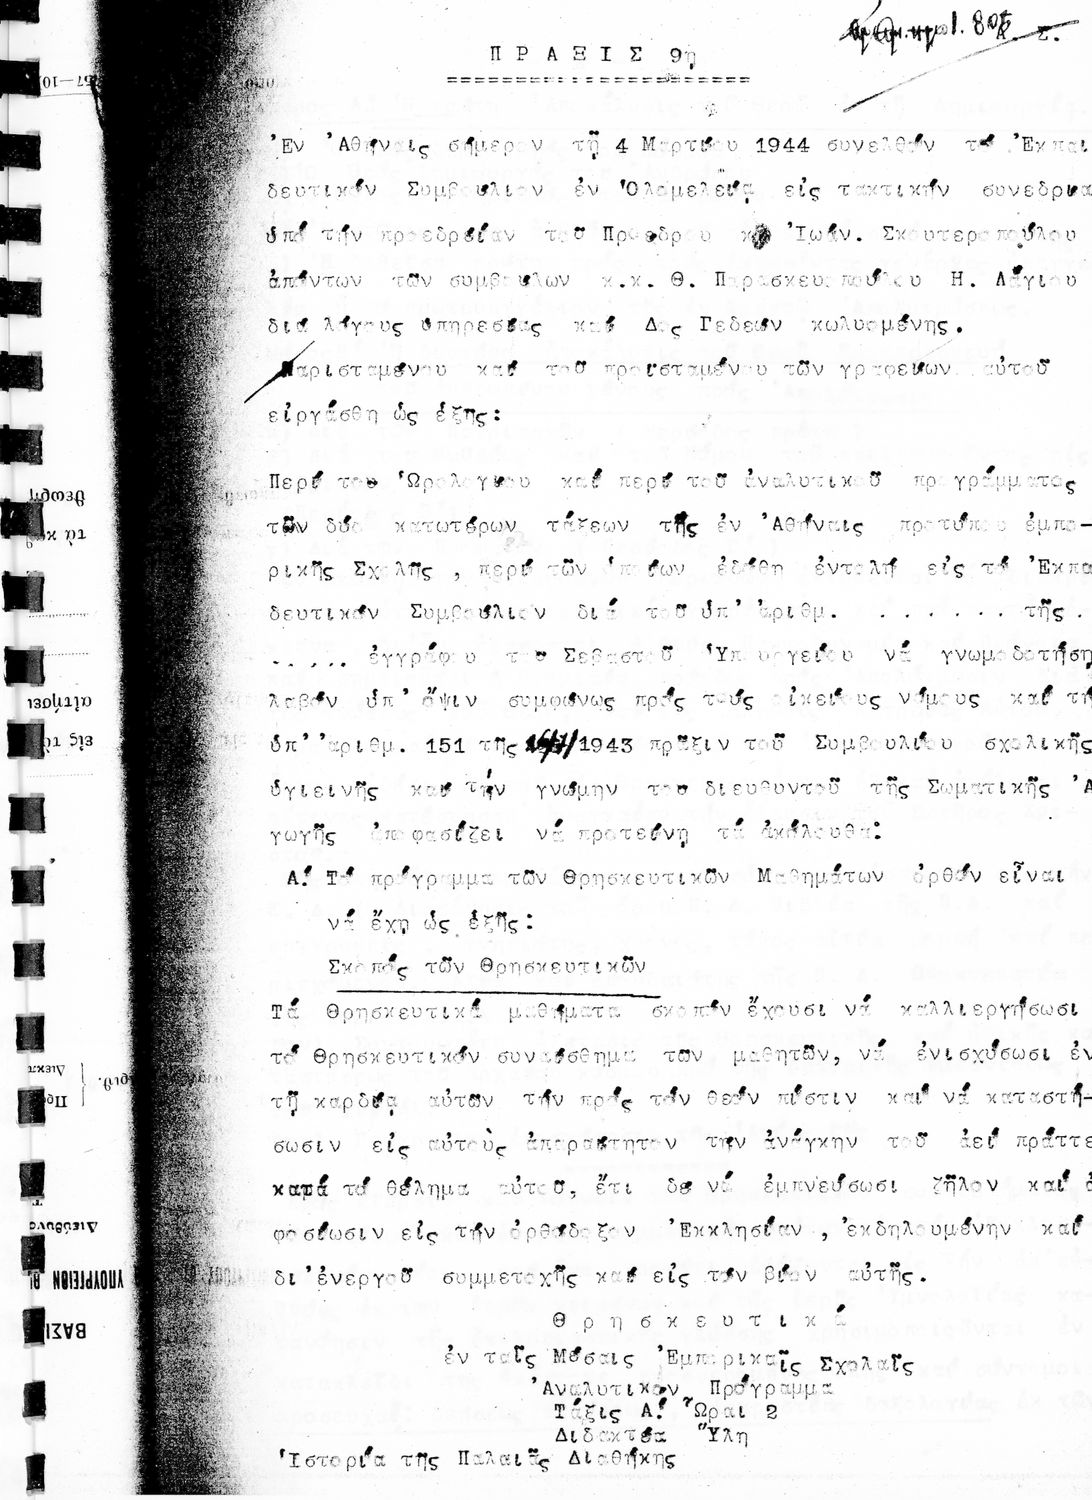 Α. Σ.
Π Ρ Α Ξ Ι Σ 9η
Ἐν Ἀθήναις σήμερον τῇ 4 Μαρτίου 1944 συνελθόν τό Ἐκπαι
δευτικόν Συμβούλιον ἐν Ὁλομελείᾳ εἰς τακτικήν συνεδρία
ὑπό τήν προεδρείαν τοῦ Προέδρου κ. Ἰωάν. Σκουτεροπούλου
ἀπόντων τῶν συμβούλων κ.κ. Θ. Παρασκευοπούλου Η. Λάγιου
διά λόγους ὑπηρεσίας καί Δος Γεδεών κωλυομένης.
Παρισταμένου καί τοῦ προισταμένου τῶν γραφείων αὐτοῦ
εἰργάσθη ὡς ἑξῆς:
Περί του Ὡρολογίου καί περί τοῦ ἀναλυτικοῦ προγράμματος
τῶν δύο κατωτέρων τάξεων τῆς ἐν Ἀθήναις προτύπου ἐμπο-
ρικῆς Σχολῆς , περί τῶν ὁποίων ἐδόθη ἐντολή εἰς τό Ἐκπα
δευτικόν Συμβούλιον διά τοῦ ὑπ' ἀριθμ. . . . . . . . τῆς .
. . . . . ἐγγράφου του Σεβαστοῦ Ὑπουργείου νά γνωμοδοτήση
λαβόν ὑπ' ὄψιν συμφώνως πρός τούς οἰκείους νόμους καί τή
ὑπ' ἀριθμ. 151 τῆς 16/7/1943 πρᾶξιν τοῦ Συμβουλίου σχολικῆς
ὑγιεινῆς καί τήν γνώμην του διευθυντοῦ τῆς Σωματικῆς Ἀ
γωγῆς ἀποφασίζει νά προτείνῃ τά ἀκόλουθα:
Α! Τό πρόγραμμα τῶν Θρησκευτικῶν Μαθημάτων ὀρθόν εἶναι
νά ἔχῃ ὡς ἑξῆς:
Σκοπός τῶν Θρησκευτικῶν
Τά Θρησκευτικά μαθήματα σκοπόν ἔχουσι νά καλλιεργήσωσι
τό Θρησκευτικόν συναίσθημα των μαθητῶν, νά ἐνισχύσωσι ἐν
τῇ καρδίᾳ αὐτῶν τήν πρός τόν θεόν πίστιν καί νά καταστή-
σωσιν εἰς αὐτοὺς ἀπαραίτητον την ἀνάγκην τοῦ ἀεί πράττε
κατά τό θέλημα αὐτοῦ, ἔτι δε νά ἐμπνεύσωσι ζῆλον καί ἀ
φοσίωσιν εἰς τήν ὀρθόδοξον Ἐκκλησίαν , ἐκδηλουμένην καί
δι' ἐνεργοῦ συμμετοχῆς καί εἰς τόν βίον αὐτῆς.
Θ ρ η σ κ ε υ τ ι κ ά
ἐν ταῖς Μέσαις Ἐμπορικαῖς Σχολαῖς
Ἀναλυτικόν Πρόγραμμα
Τάξις Α! Ὧραι 2
Διδακτέα Ὕλη
Ἱστορία τῆς Παλαιᾶς Διαθήκης